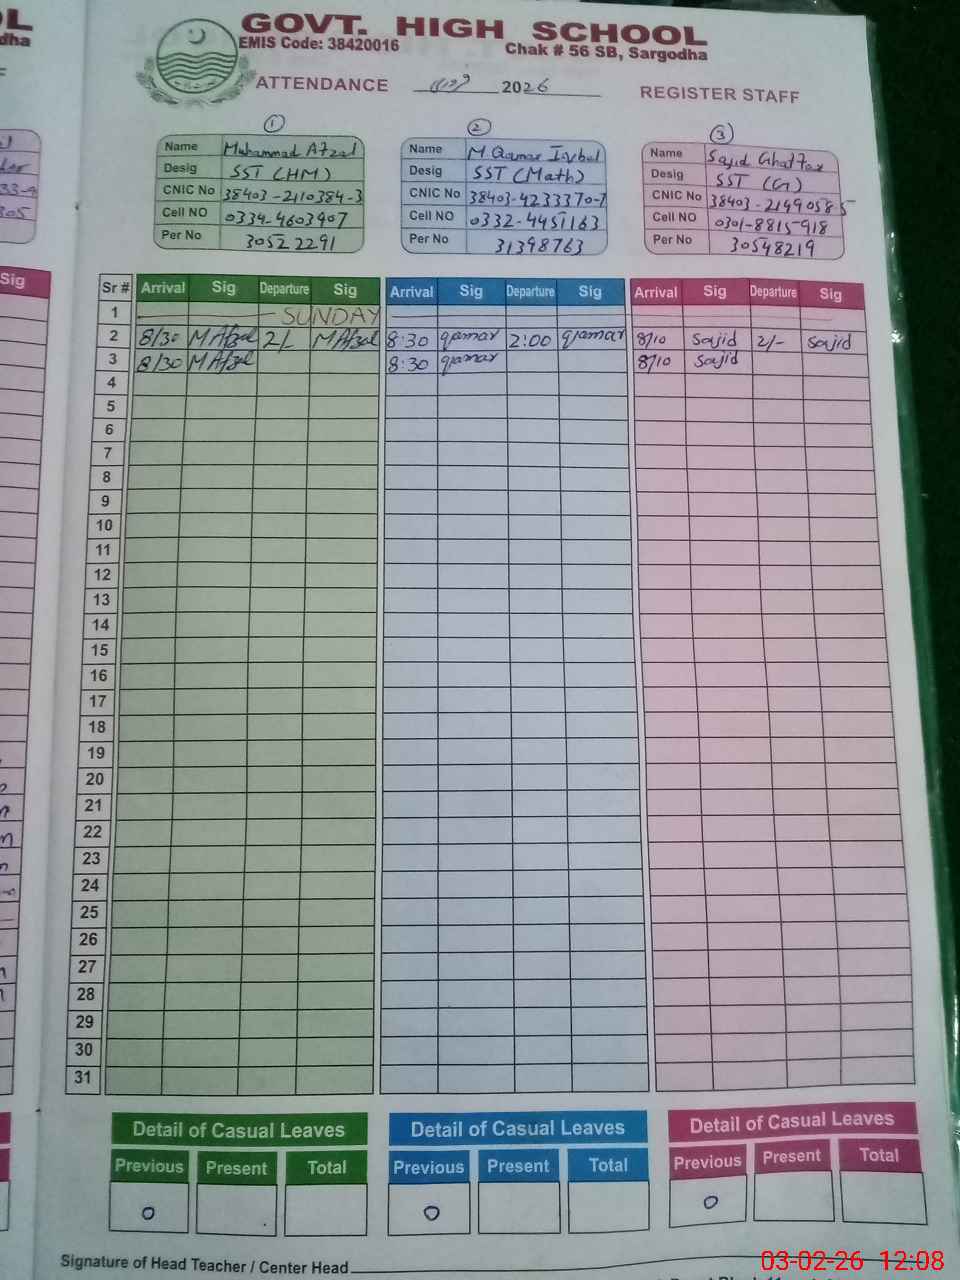 GOVT. HIGH SCHOOL
EMIS Code: 38420016 Chak # 56 SB, Sargodha
ATTENDANCE 2026 REGISTER STAFF
1 2 3
Name Muhammad Afzal
Desig SST (HM)
CNIC No 38403-2110384-3
Cell NO 0334-4603907
Per No 30522291
Name M Qamar Iqbal
Desig SST (Math)
CNIC No 38403-4233370-7
Cell NO 0332-4451163
Per No 31398763
Name Sajid Ghaffar
Desig SST (G)
CNIC No 38403-2149058-5
Cell NO 0301-8815918
Per No 30548219
Sr # Arrival Sig Departure Sig Arrival Sig Departure Sig Arrival Sig Departure Sig
1 SUNDAY
2 8/30 M Afzal 2/- M Afzal 8:30 qamar 2:00 qamar 8/10 Sajid 2/- Sajid
3 8/30 M Afzal 8:30 qamar 8/10 Sajid
4
5
6
7
8
9
10
11
12
13
14
15
16
17
18
19
20
21
22
23
24
25
26
27
28
29
30
31
Detail of Casual Leaves Detail of Casual Leaves Detail of Casual Leaves
Previous Present Total Previous Present Total Previous Present Total
0 0 0
Signature of Head Teacher / Center Head
03-02-26 12:08